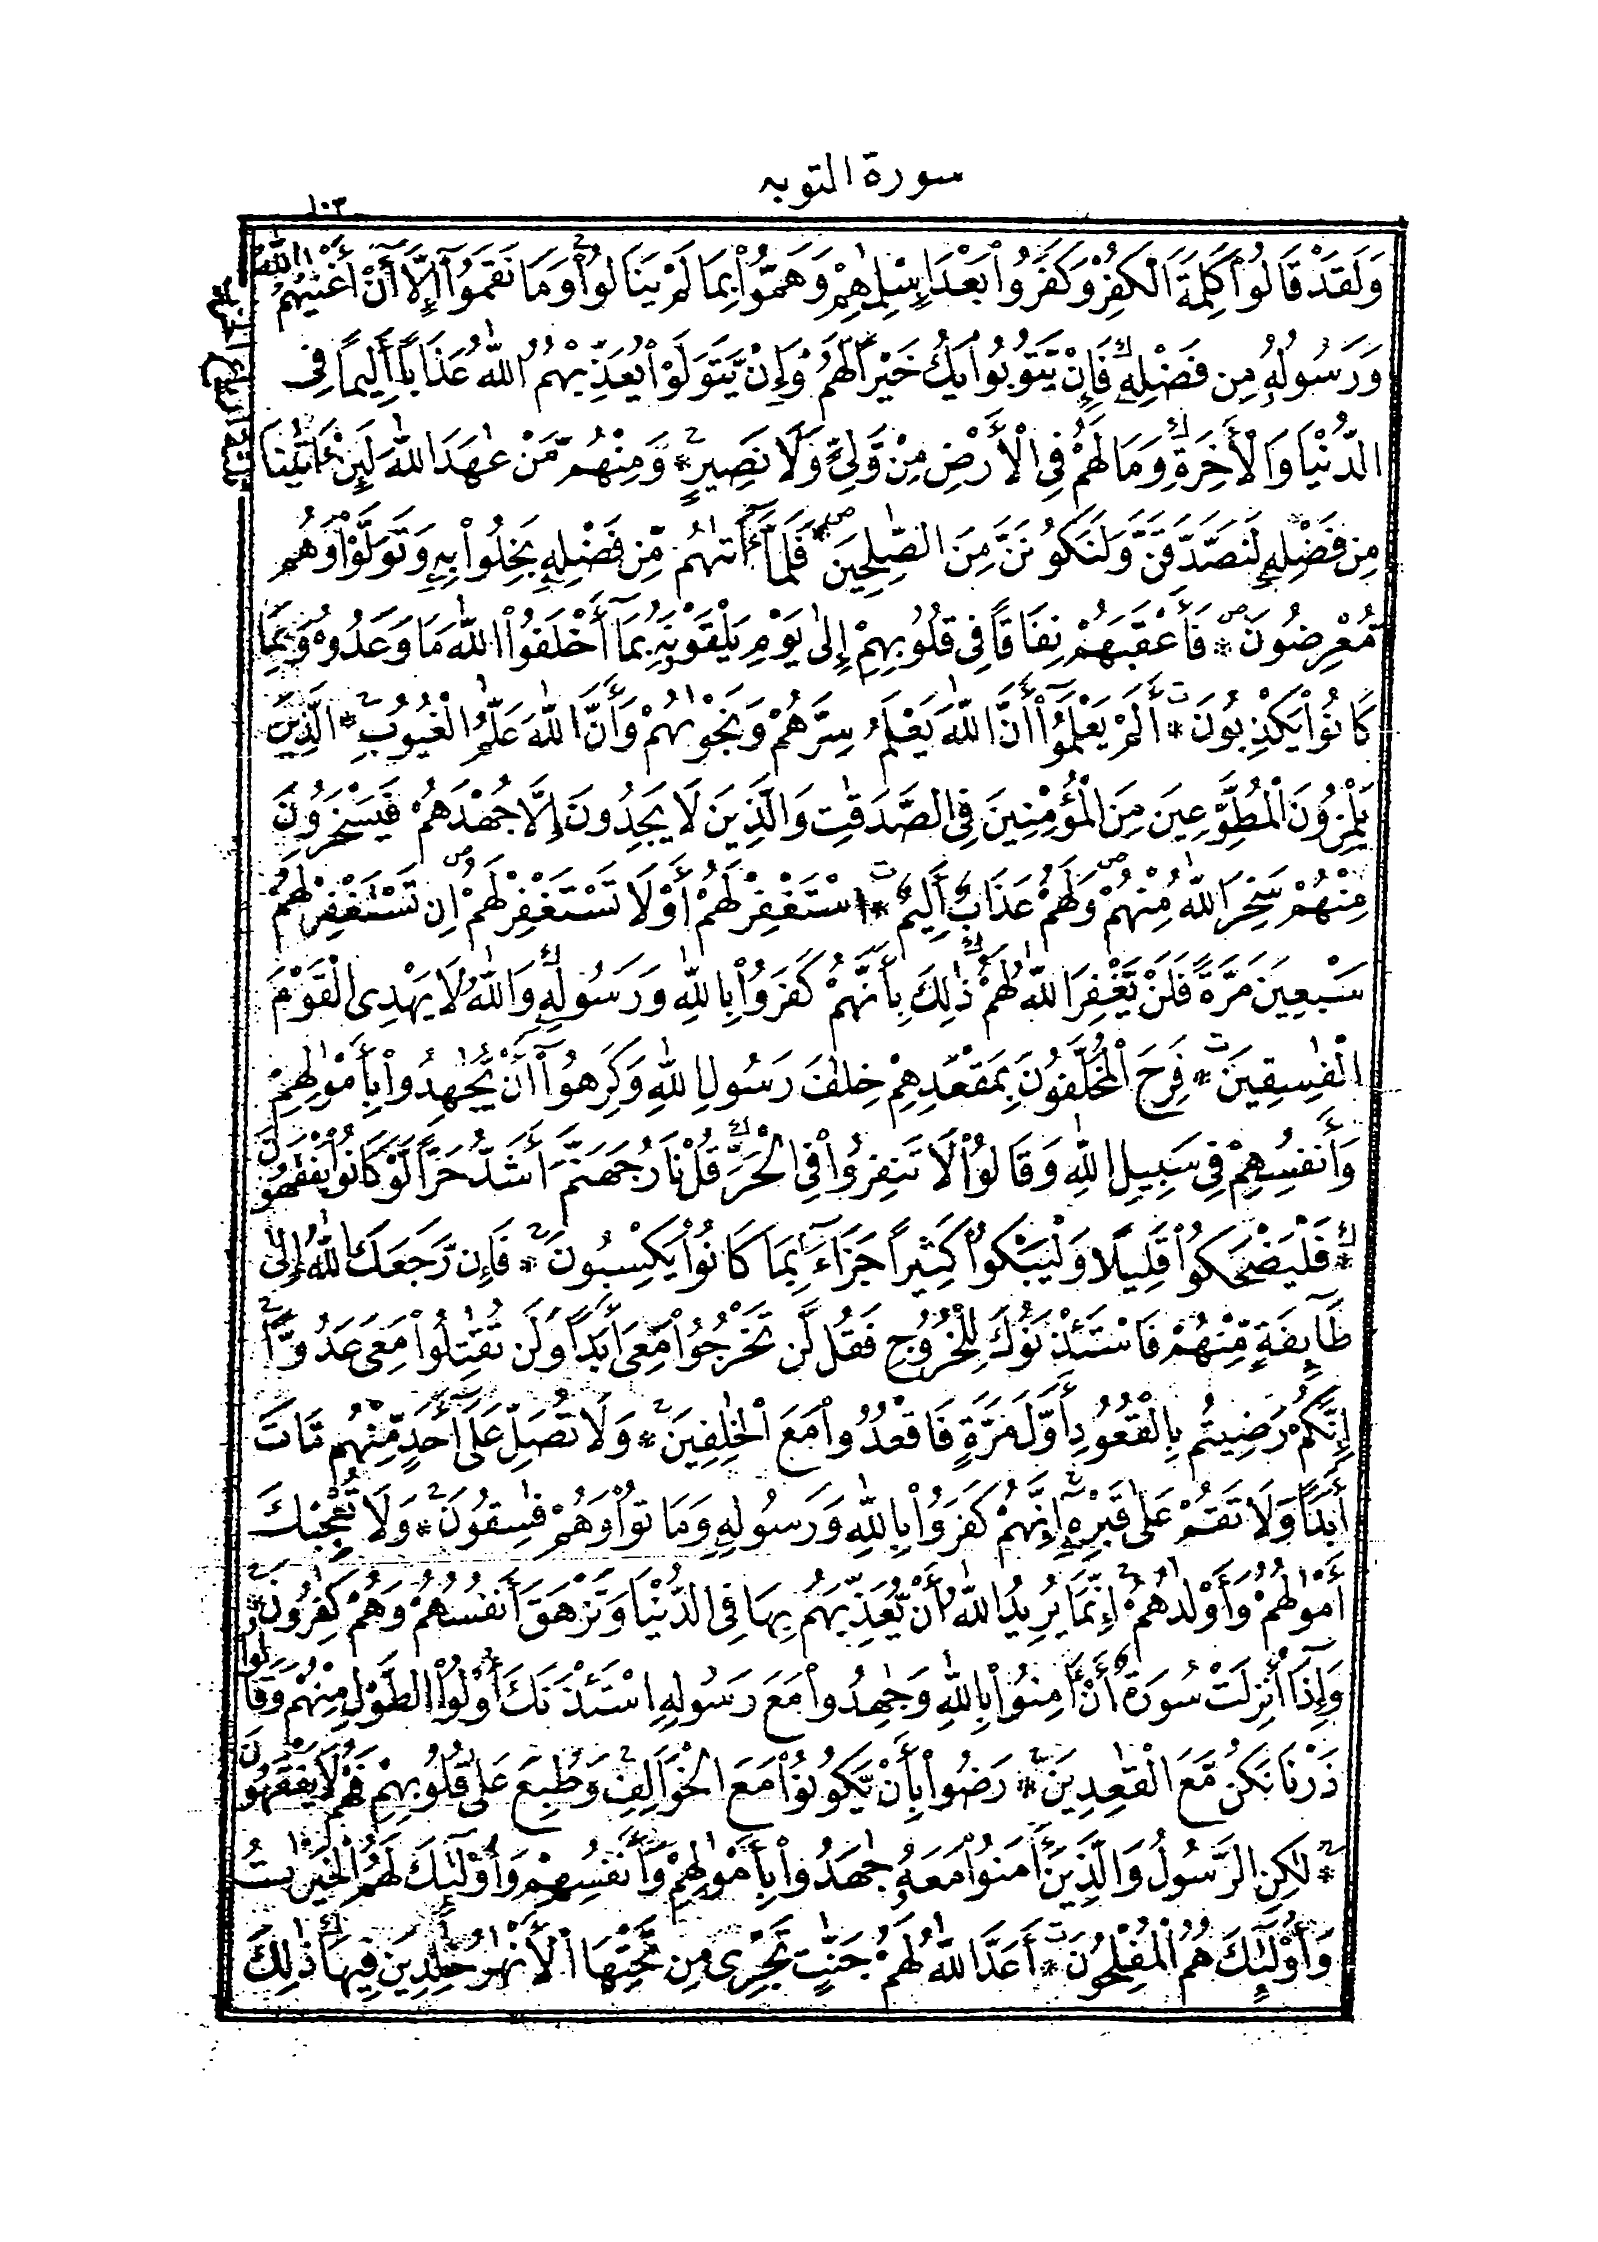 سورة التوبه
١٠٣
وَلَقَدْ قَالُواْ كَلِمَةَ الْكُفْرِ وَكَفَرُواْ بَعْدَ إِسْلٰمِهِمْ وَهَمُّواْ بِمَا لَمْ يَنَالُواْ ۚ وَمَا نَقَمُوٓاْ إِلَّآ أَنْ أَغْنٰىهُمُ اللّٰهُ
وَرَسُولُهُۥ مِن فَضْلِهِۦ ۚ فَإِنْ يَّتُوبُواْ يَكُ خَيْراً لَّهُمْ ۖ وَإِنْ يَّتَوَلَّوْاْ يُعَذِّبْهُمُ اللّٰهُ عَذَاباً أَلِيماً فِى
الدُّنْيَا وَالْأَخِرَةِ ۚ وَمَا لَهُمْ فِى الْأَرْضِ مِنْ وَّلِىٍّ وَّلَا نَصِيرٍ * وَمِنْهُم مَّنْ عٰهَدَ اللّٰهَ لَئِنْ ءَاتٰىنَا
مِن فَضْلِهِۦ لَنَصَّدَّقَنَّ وَلَنَكُونَنَّ مِنَ الصّٰلِحِينَ * فَلَمَّآ ءَاتٰىهُم مِّن فَضْلِهِۦ بَخِلُواْ بِهِۦ وَتَوَلَّوْاْ وَّهُم
مُّعْرِضُونَ * فَأَعْقَبَهُمْ نِفَاقاً فِى قُلُوبِهِمْ إِلىٰ يَوْمِ يَلْقَوْنَهُۥ بِمَآ أَخْلَفُواْ اللّٰهَ مَا وَعَدُوهُ وَبِمَا
كَانُواْ يَكْذِبُونَ * أَلَمْ يَعْلَمُوٓاْ أَنَّ اللّٰهَ يَعْلَمُ سِرَّهُمْ وَنَجْوٰىهُمْ وَأَنَّ اللّٰهَ عَلّٰمُ الْغُيُوبِ * الَّذِينَ
يَلْمِزُونَ الْمُطَّوِّعِينَ مِنَ الْمُؤْمِنِينَ فِى الصَّدَقٰتِ وَالَّذِينَ لَا يَجِدُونَ إِلَّا جُهْدَهُمْ فَيَسْخَرُونَ
مِنْهُمْ سَخِرَ اللّٰهُ مِنْهُمْ وَلَهُمْ عَذَابٌ أَلِيمٌ * اسْتَغْفِرْ لَهُمْ أَوْ لَا تَسْتَغْفِرْ لَهُمْ اِن تَسْتَغْفِرْ لَهُمْ
سَبْعِينَ مَرَّةً فَلَنْ يَّغْفِرَ اللّٰهُ لَهُمْ ۚ ذٰلِكَ بِأَنَّهُمْ كَفَرُواْ بِاللّٰهِ وَرَسُولِهِۦ ۗ وَاللّٰهُ لَا يَهْدِى الْقَوْمَ
الْفٰسِقِينَ * فَرِحَ الْمُخَلَّفُونَ بِمَقْعَدِهِمْ خِلٰفَ رَسُولِ اللّٰهِ وَكَرِهُوٓاْ أَنْ يُّجٰهِدُواْ بِأَمْوٰلِهِمْ
وَأَنفُسِهِمْ فِى سَبِيلِ اللّٰهِ وَقَالُواْ لَا تَنفِرُواْ فِى الْحَرِّ ۗ قُلْ نَارُ جَهَنَّمَ أَشَدُّ حَرّاً لَّوْ كَانُواْ يَفْقَهُونَ
* فَلْيَضْحَكُواْ قَلِيلًا وَلْيَبْكُواْ كَثِيراً جَزَآءَۢ بِمَا كَانُواْ يَكْسِبُونَ * فَإِن رَّجَعَكَ اللّٰهُ إِلىٰ
طَآئِفَةٍ مِّنْهُمْ فَاسْتَئْذَنُوكَ لِلْخُرُوجِ فَقُل لَّن تَخْرُجُواْ مَعِىَ أَبَداً وَلَن تُقٰتِلُواْ مَعِىَ عَدُوّاً
إِنَّكُمْ رَضِيتُم بِالْقُعُودِ أَوَّلَ مَرَّةٍ فَاقْعُدُواْ مَعَ الْخٰلِفِينَ * وَلَا تُصَلِّ عَلَىٰٓ أَحَدٍ مِّنْهُم مَّاتَ
أَبَداً وَّلَا تَقُمْ عَلىٰ قَبْرِهِۦٓ إِنَّهُمْ كَفَرُواْ بِاللّٰهِ وَرَسُولِهِۦ وَمَاتُواْ وَهُمْ فٰسِقُونَ * وَلَا تُعْجِبْكَ
أَمْوٰلُهُمْ وَأَوْلٰدُهُمْ ۚ إِنَّمَا يُرِيدُ اللّٰهُ أَنْ يُّعَذِّبَهُم بِهَا فِى الدُّنْيَا وَتَزْهَقَ أَنفُسُهُمْ وَهُمْ كٰفِرُونَ *
وَإِذَآ أُنزِلَتْ سُورَةٌ أَنْ ءَامِنُواْ بِاللّٰهِ وَجٰهِدُواْ مَعَ رَسُولِهِ اسْتَئْذَنَكَ أُوْلُواْ الطَّوْلِ مِنْهُمْ وَقَالُواْ
ذَرْنَا نَكُن مَّعَ الْقٰعِدِينَ * رَضُواْ بِأَنْ يَّكُونُواْ مَعَ الْخَوَالِفِ وَطُبِعَ عَلىٰ قُلُوبِهِمْ فَهُمْ لَا يَفْقَهُونَ
* لٰكِنِ الرَّسُولُ وَالَّذِينَ ءَامَنُواْ مَعَهُۥ جٰهَدُواْ بِأَمْوٰلِهِمْ وَأَنفُسِهِمْ وَأُوْلٰٓئِكَ لَهُمُ الْخَيْرٰتُ
وَأُوْلٰٓئِكَ هُمُ الْمُفْلِحُونَ * أَعَدَّ اللّٰهُ لَهُمْ جَنّٰتٍ تَجْرِى مِن تَحْتِهَا الْأَنْهٰرُ خٰلِدِينَ فِيهَا ذٰلِكَ